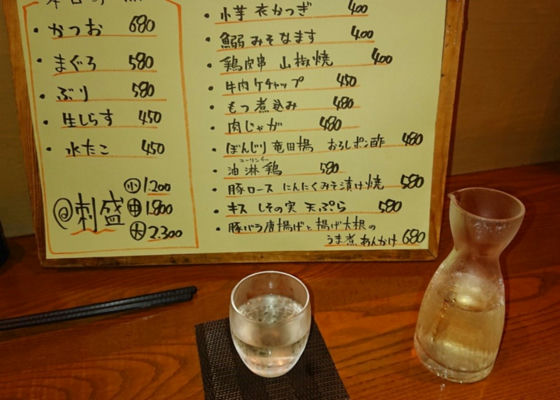 本日の
・かつお 680
・まぐろ 580
・ぶり 580
・生しらす 450
・水たこ 450
@刺盛 小 1.200
中 1.800
大 2.300
・小芋 衣かつぎ 400
・鰯みそなます 400
・鶏皮串 山椒焼 400
・牛肉ケチャップ 450
・もつ煮込み 480
・肉じゃが 480
・ぼんじり 竜田揚 おろしポン酢 480
・油淋鶏 580
ユーリンチー
・豚ロース にんにくみそ漬け焼 580
・キス しその実 天ぷら 580
・豚バラ唐揚げと揚げ大根の
うま煮あんかけ 680